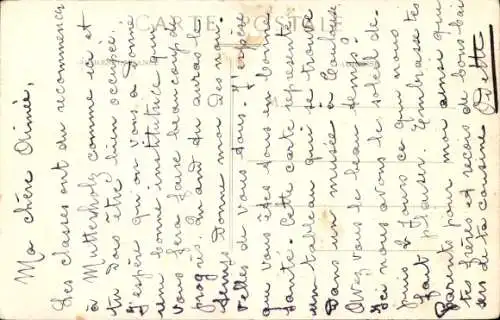 CARTE POSTALE
Ma chère Aimée,
Les classes ont du recommencer
à Muttersholz comme ici et
tu dois être bien occupée.
J'espère qu'on vous a donné
une bonne institutrice qui
vous fera faire beaucoup de
progrès. Quand tu auras le
temps donne moi des nou-
velles de vous tous. J'espère
que vous êtes tous en bonne
santé. Cette carte représente
un tableau qui se trouve
dans un musée à
Avez vous le beau temps?
Ici nous avons le soleil de-
puis jours ce qui nous
fait plaisir. Embrasse tes
parents pour moi ainsi que
tes frères et reçois de bons bai
sers de ta cousine Odette